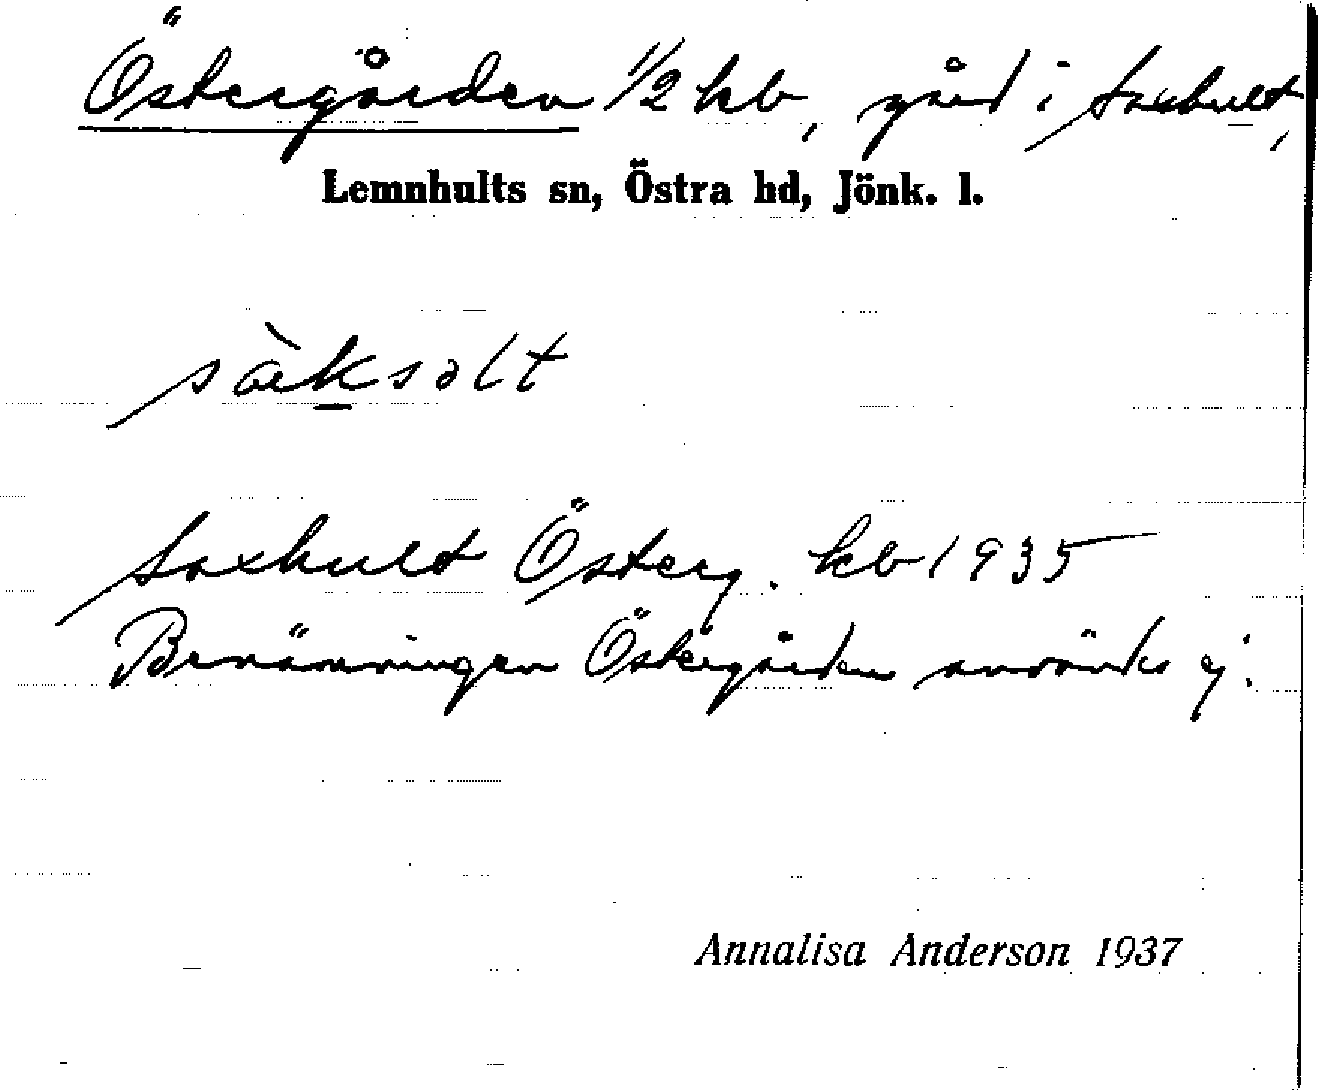 Östergården 1/2 hb, gård i Saxhult,
Lemnhults sn, Östra hd, Jönk. l.
sàksolt
Saxhult Österg. kb 1935
Benämningen Östergården användes ej.
Annalisa Anderson 1937